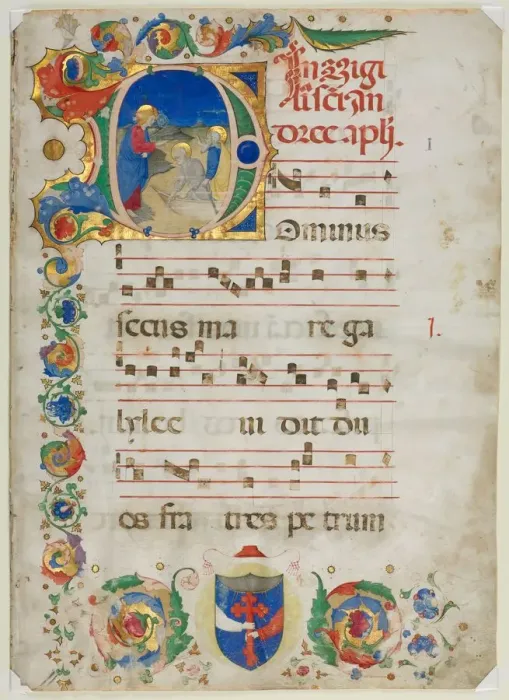 In vigi
lia sci An
dree apli.
I
Dominus
secus ma re ga
1.
lylee ui dit du
os fra tres pe trum